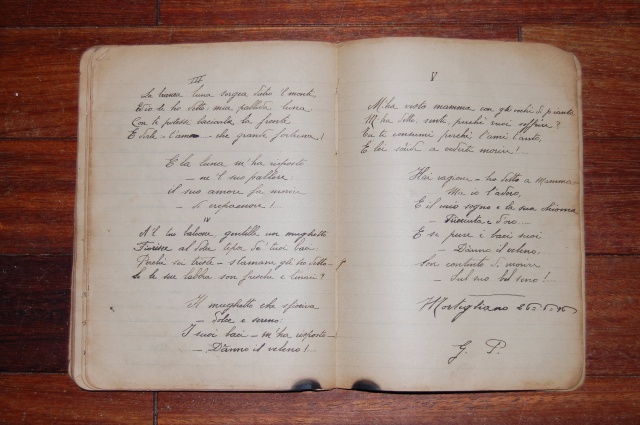 III
La bianca luna sorgea dietro 'l monte
Ed io le ho detto: mia pallida luna
Con te potessi baciarle la fronte
E dirle - t'amo - che grande fortuna!
E la luna m'ha risposto
- ne 'l suo pallore:
il suo amore fa morire
- di crepacuore!
IV
Al tuo balcone gentille un mughetto
Fiorisce al dolce dei tuoi baci
Perchè sei triste - stamane gli ho detto -
Se le sue labbra son fresche e vivaci?
Il mughetto che fioriva
- dolce e sereno:
I suoi baci - m'ha risposto -
- Dànno il veleno!...
V
M'ha visto mamma con gli occhi di pianto
M'ha detto: senti, perchè vuoi soffrire?
Tu ti consumi perchè l'ami tanto,
E lei saride a vederti morire!...
Hai ragione - ho detto a Mamma -
Ma io l'adoro,
E il mio sogno e la sua chioma
- Fiorita d'oro...
E se pure i baci suoi
- Dànno il veleno.
Son contento di morire
- Sul suo bel seno!...
Mortigliano 26-5-
G. P.